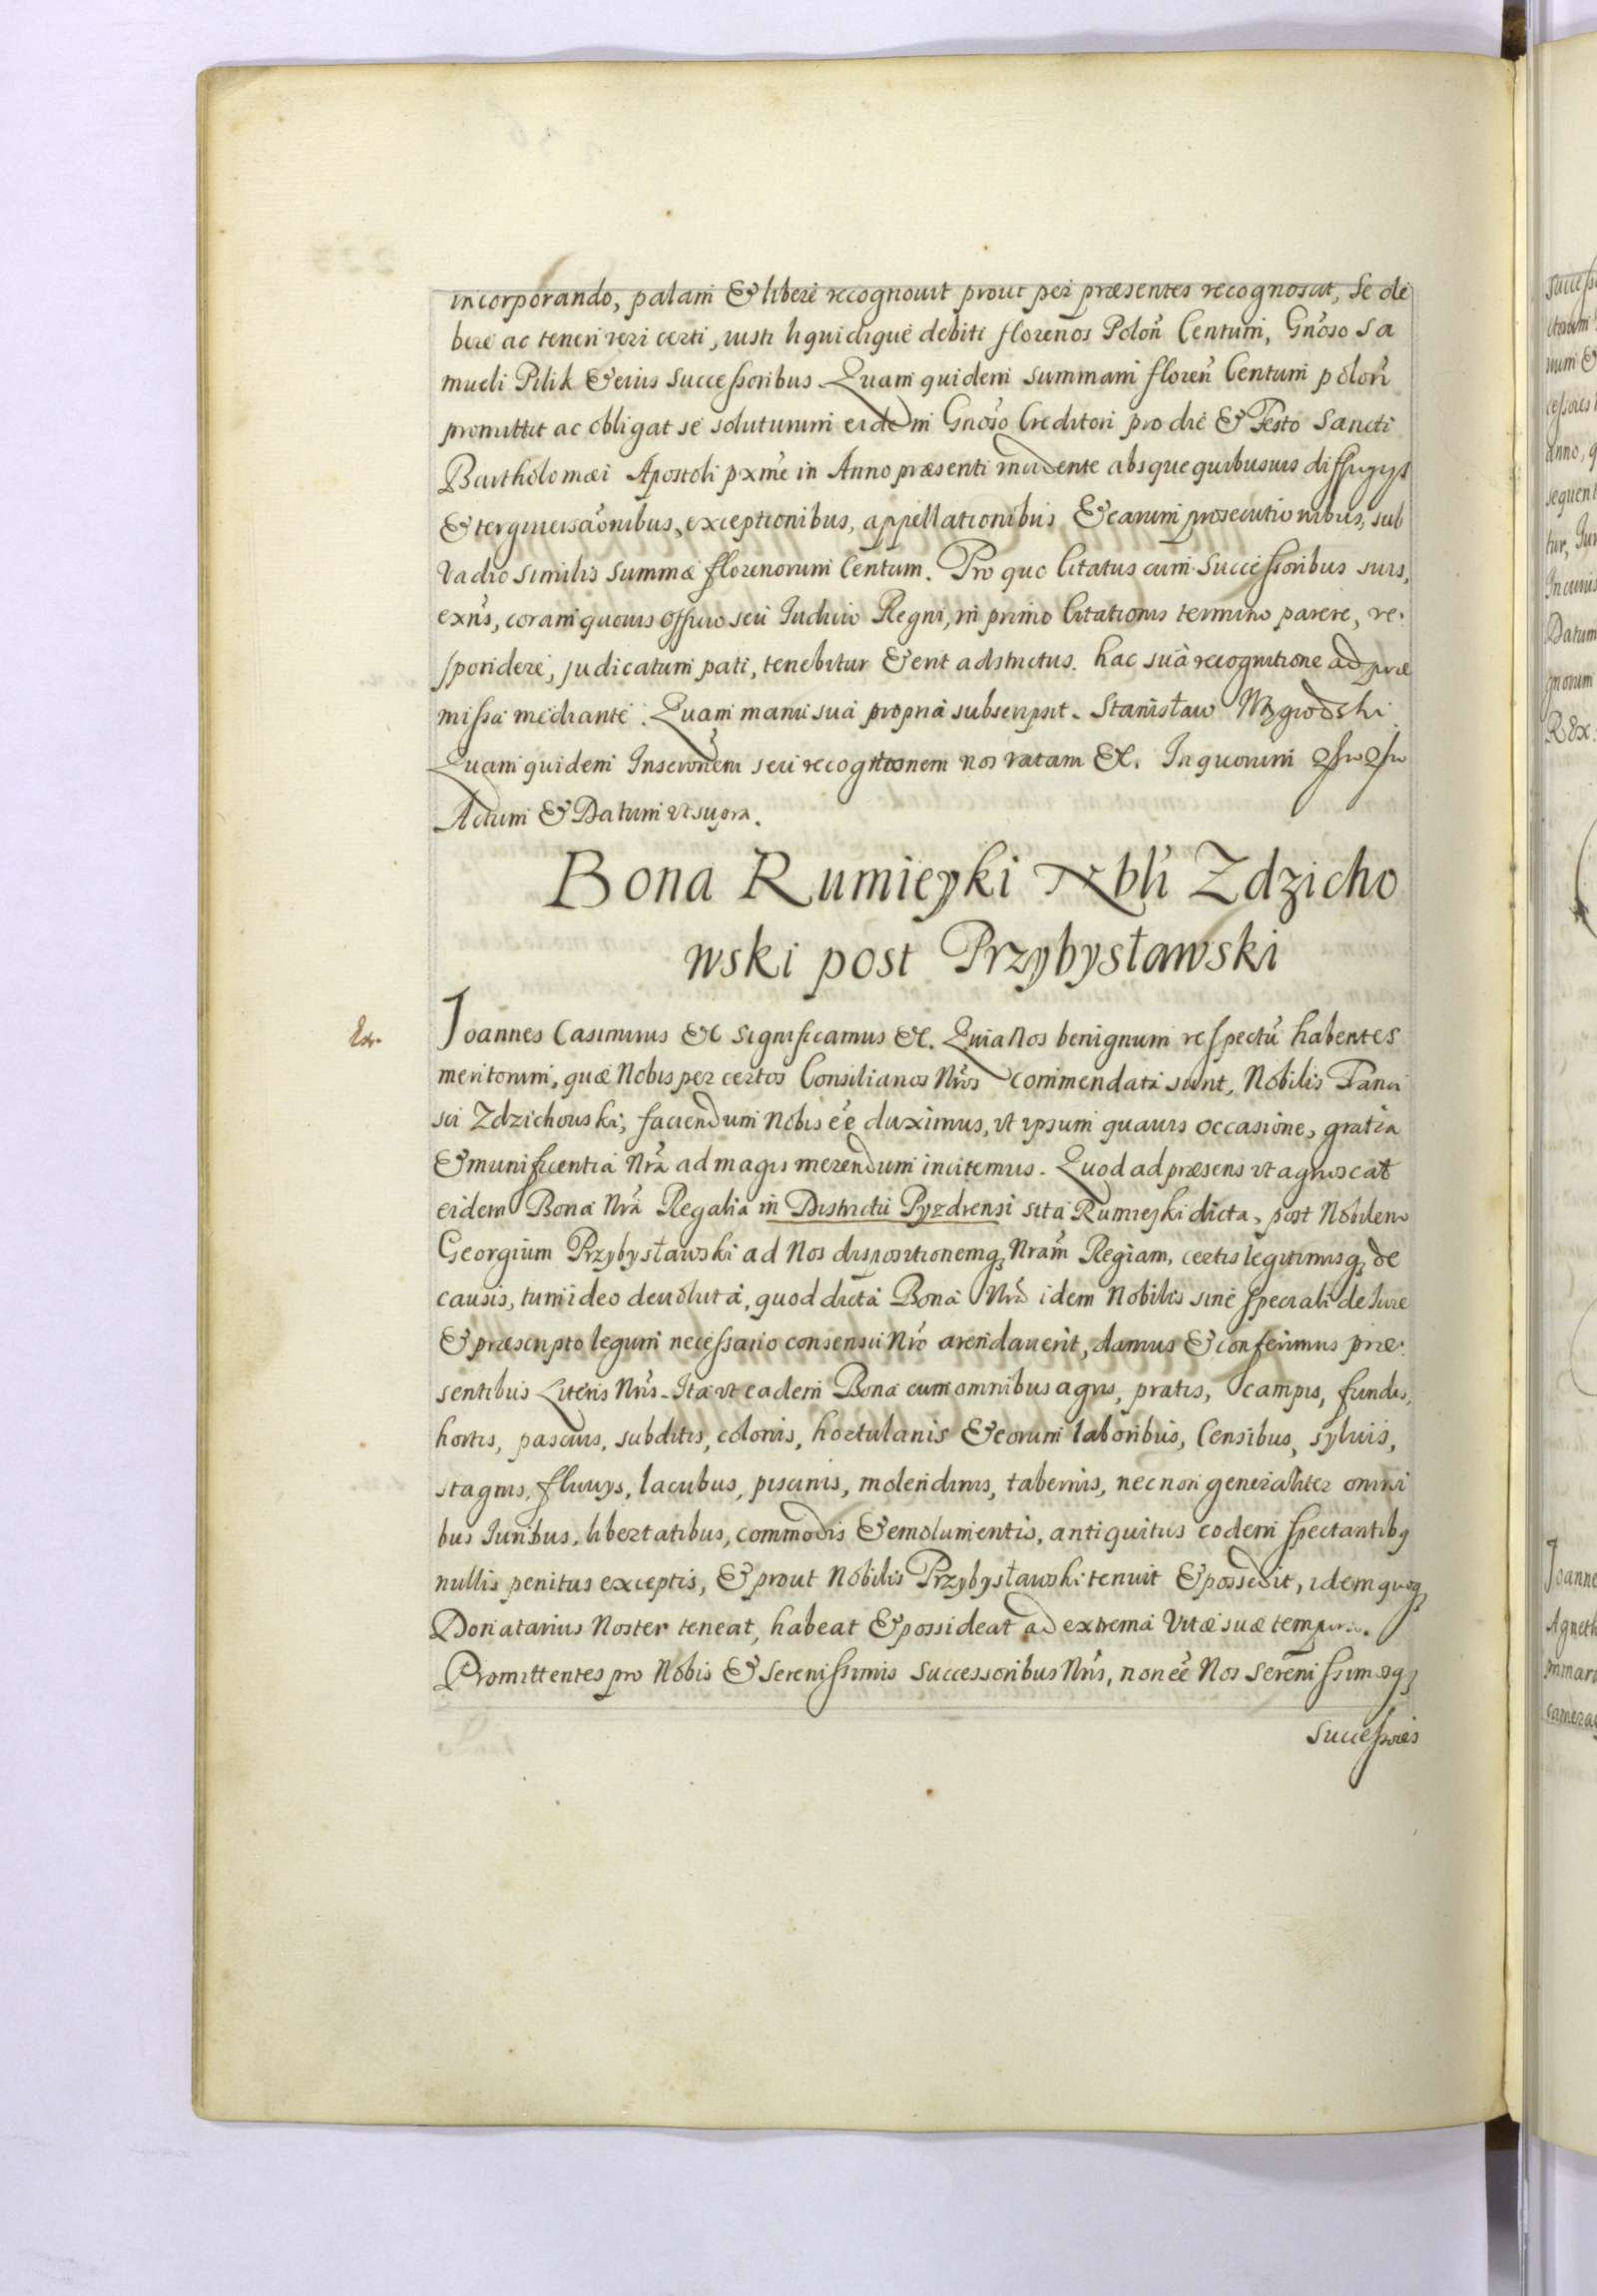 incorporando, palam & liberè recognouit prout per præsentes recognoscit, Se de
bere ac teneri veri certi, iusti liquidique debiti florenos Poloñ Centum, Gnoso Sa
mueli Pilik & eius Successoribus. Quam quidem summam floreñ Centum poloñ
promittit ac obligat se soluturum eidem Gnoso Creditori pro die & Festo Sancti
Bartholomæi Apostoli pxme in Anno præsenti incidente absque quibusuis diffugys
& tergiuersaonibus, exceptionibus, appellationibus & earum prosecutionibus, sub
Vadio similis summæ florenorum Centum. Pro quo Citatus cum Successoribus suis,
exñs, coram quouis Officio seu Iudicio Regni, in primo Citationis termino parere, re-
spondere, judicatum pati, tenebitur & erit adstrictus. hac suà recognitione ad præ
missa mediante. Quam manu sua propria subscripsit. Stanisław
Quam quidem Inscronem seu recognitionem nos ratam &c. In quorum
Actum & Datum vt supra.
Bona Rumieyki Nbli Zdzicho
wski post Przybysławski
Joannes Casimirus &c significamus &c. Quia Nos benignum respectũ habentes
meritorum, quæ Nobis per certos Consiliarios Nros commendata sunt, Nobilis Franci
sci Zdzichowski, faciendum Nobis eẽ duximus, vt ipsum quauis occasione, gratia
& munificentia Nra ad magis merendum incitemus. Quod ad præsens vt agnoscat
eidem Bona Nra Regalia in Districtu Pyzdrensi sita Rumieyki dicta, post Nobilem
Georgium Przybysławski ad Nos dispositionemq; Nram Regiam, certis legitimisq; de
causis, tum ideo deuoluta, quod dicta Bona Nra idem Nobilis sine speciali de Iure
& præscripto legum necessario consensu Nro arendauerit, damus & conferimus præ-
sentibus Literis Nris. Ita vt eadem Bona cum omnibus agris, pratis, campis, fundis,
hortis, pascuis, subditis, colonis, hortulanis & eorum laboribus, Censibus, syluis,
stagnis, fluuys, lacubus, piscinis, molendinis, tabernis, nec non generaliter omni
bus Iuribus, libertatibus, commodis & emolumentis, antiquitus eodem spectantibq
nullis penitus exceptis, & prout Nobilis Przybysławski tenuit & possedit, idem quoq;
Donatarius Noster teneat, habeat & possideat ad extrema Vitæ suæ tempora.
Promittentes pro Nobis & Serenissimis Successoribus Nris, non eẽ Nos Serenissimosq;
Successores